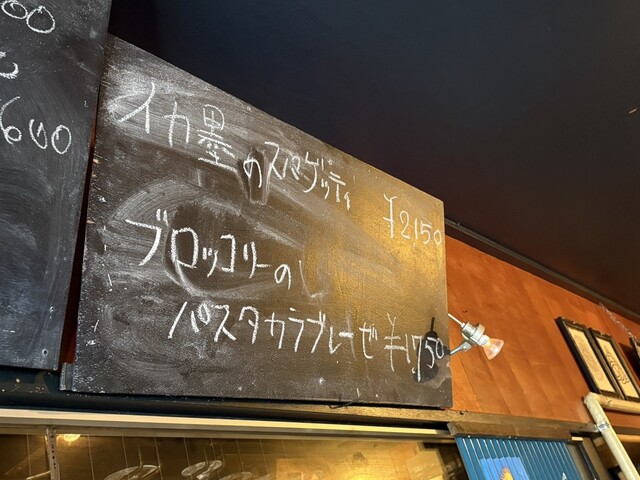 00
600
イカ墨のスパゲッティ ¥2150
ブロッコリーの
パスタカラブレーゼ ¥1,750